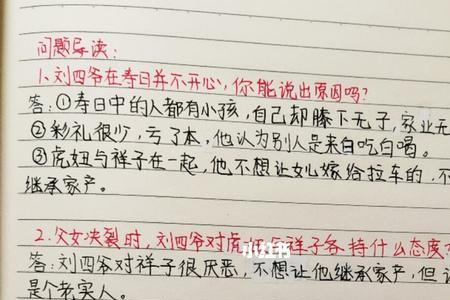 问题导读:
1、刘四爷在寿日并不开心,你能说出原因吗?
答:①寿日中的人都有小孩,自己却膝下无子,家业无
②彩礼很少,亏了本,他认为别人是来白吃白喝。
③虎妞与祥子在一起,他不想让女儿嫁给拉车的,不
继承家产。
2.父女决裂时,刘四爷对虎妞与祥子各持什么态度?
答:刘四爷对祥子很厌恶,不想让他继承家产,但
是个老实人。
小红书